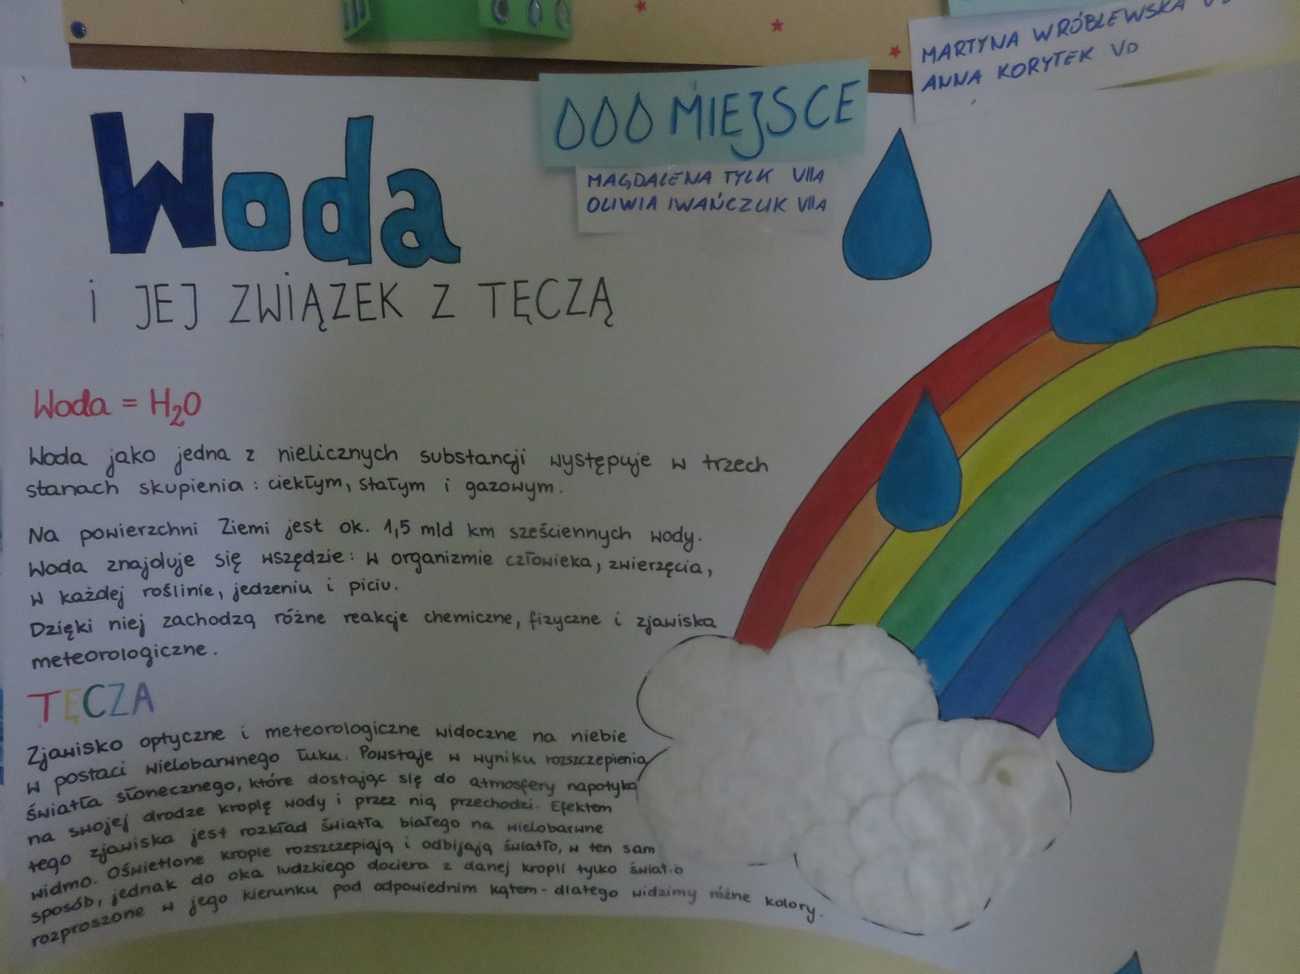 MARTYNA WRÓBLEWSKA
ANNA KORYTEK VD
MIEJSCE
MAGDALENA TYLK VIIA
OLIWIA IWAŃCZUK VIIA
Woda
i JEJ ZWIĄZEK Z TĘCZĄ
Woda = H₂O
Woda jako jedna z nielicznych substancji występuje w trzech
stanach skupienia : ciekłym, stałym i gazowym.
Na powierzchni Ziemi jest ok. 1,5 mld km sześciennych wody.
Woda znajduje się wszędzie: w organizmie człowieka, zwierzęcia,
w każdej roślinie, jedzeniu i piciu.
Dzięki niej zachodzą różne reakcje chemiczne, fizyczne i zjawiska
meteorologiczne.
TĘCZA
Zjawisko optyczne i meteorologiczne widoczne na niebie
w postaci wielobarwnego łuku. Powstaje w wyniku rozszczepienia
światła słonecznego, które dostając się do atmosfery napotyka
na swojej drodze kroplę wody i przez nią przechodzi. Efektem
tego zjawiska jest rozkład światła białego na wielobarwne
widmo. Oświetlone krople rozszczepiają i odbijają światło, w ten sam
sposób, jednak do oka ludzkiego dociera z danej kropli tylko światło
rozproszone w jego kierunku pod odpowiednim kątem - dlatego widzimy różne kolory.